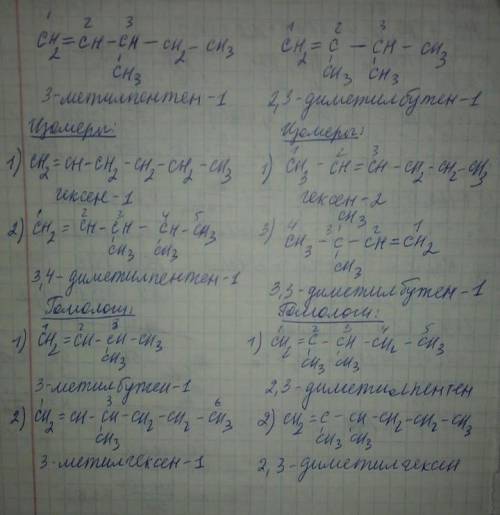 1 2 3
CH2=CH-CH-CH2-CH3
CH3
3-метилпентен-1
Изомеры:
1) CH2=CH-CH2-CH2-CH2-CH3
гексен-1
1 2 3 4 5
2) CH2=CH-CH-CH-CH3
CH3 CH3
3,4-диметилпентен-1
Гомологи:
1 2 3
1) CH2=CH-CH-CH3
CH3
3-метилбутен-1
3 6
2) CH2=CH-CH-CH2-CH2-CH3
CH3
3-метилгексен-1
1 2 3
CH2=C-CH-CH3
CH3 CH3
2,3-диметилбутен-1
Изомеры:
1 2 3
1) CH3-CH=CH-CH2-CH2-CH3
гексен-2
CH3
4 3 2 1
3) CH3-C-CH=CH2
CH3
3,3-диметилбутен-1
Гомологи:
1 2 3 4 5
1) CH2=C-CH-CH2-CH3
CH3 CH3
2,3-диметилпентен
2) CH2=C-CH-CH2-CH2-CH3
CH3 CH3
2,3-диметилгексен